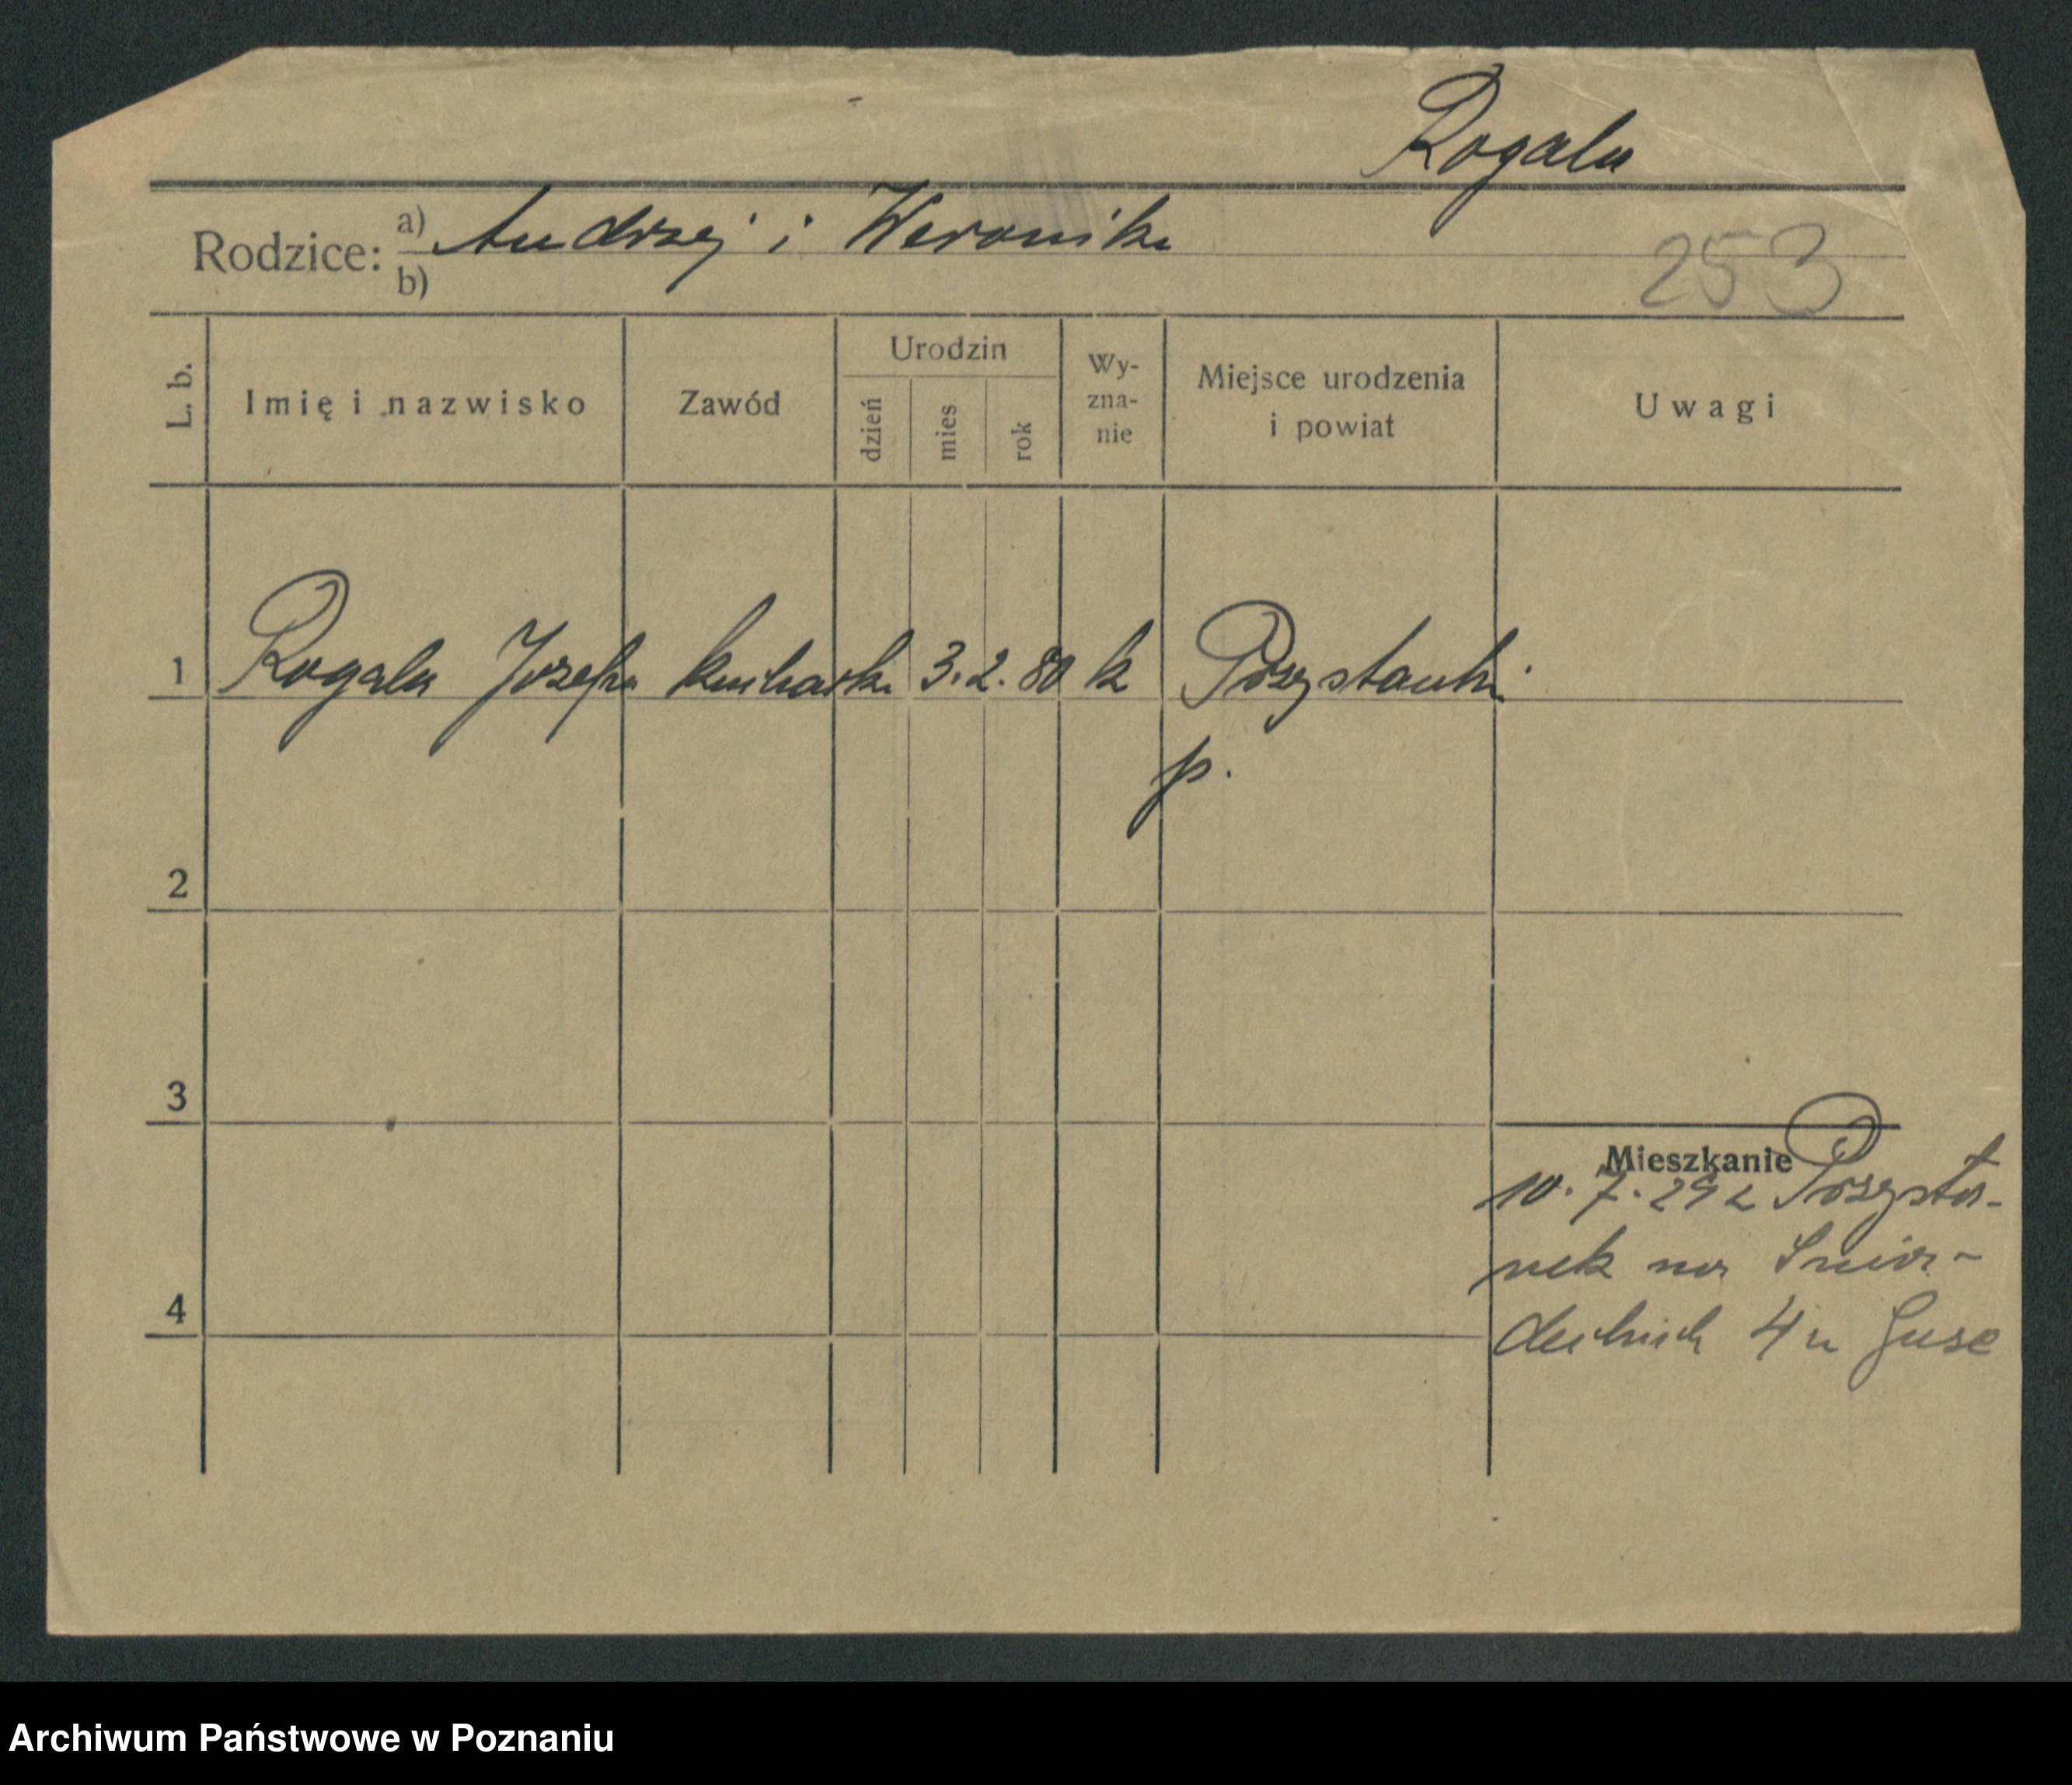 Rogala
Rodzice: a) Andrzej i Weronika
b)
253
L. b. Imię i nazwisko Zawód Urodzin dzień mies rok Wy-zna-nie Miejsce urodzenia i powiat Uwagi
1 Rogala Józefa kucharka 3. 2. 80 k Przystanki
p.
2
3
Mieszkanie
10. 7. 29 z Przysta-
nek na Śnia-
deckich 4 u
4
Archiwum Państwowe w Poznaniu